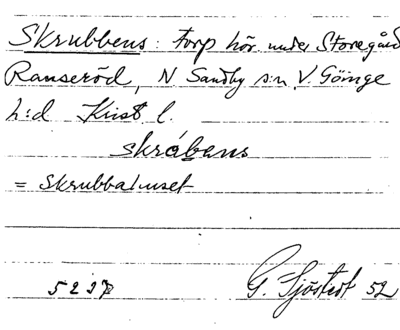 Skrubbens: torp hör under Storegård
Ranseröd, N Sandby s:n V. Göinge
h:d Krist l.
skråbens
= Skrubbahuset
5237 G. Sjöstedt 52